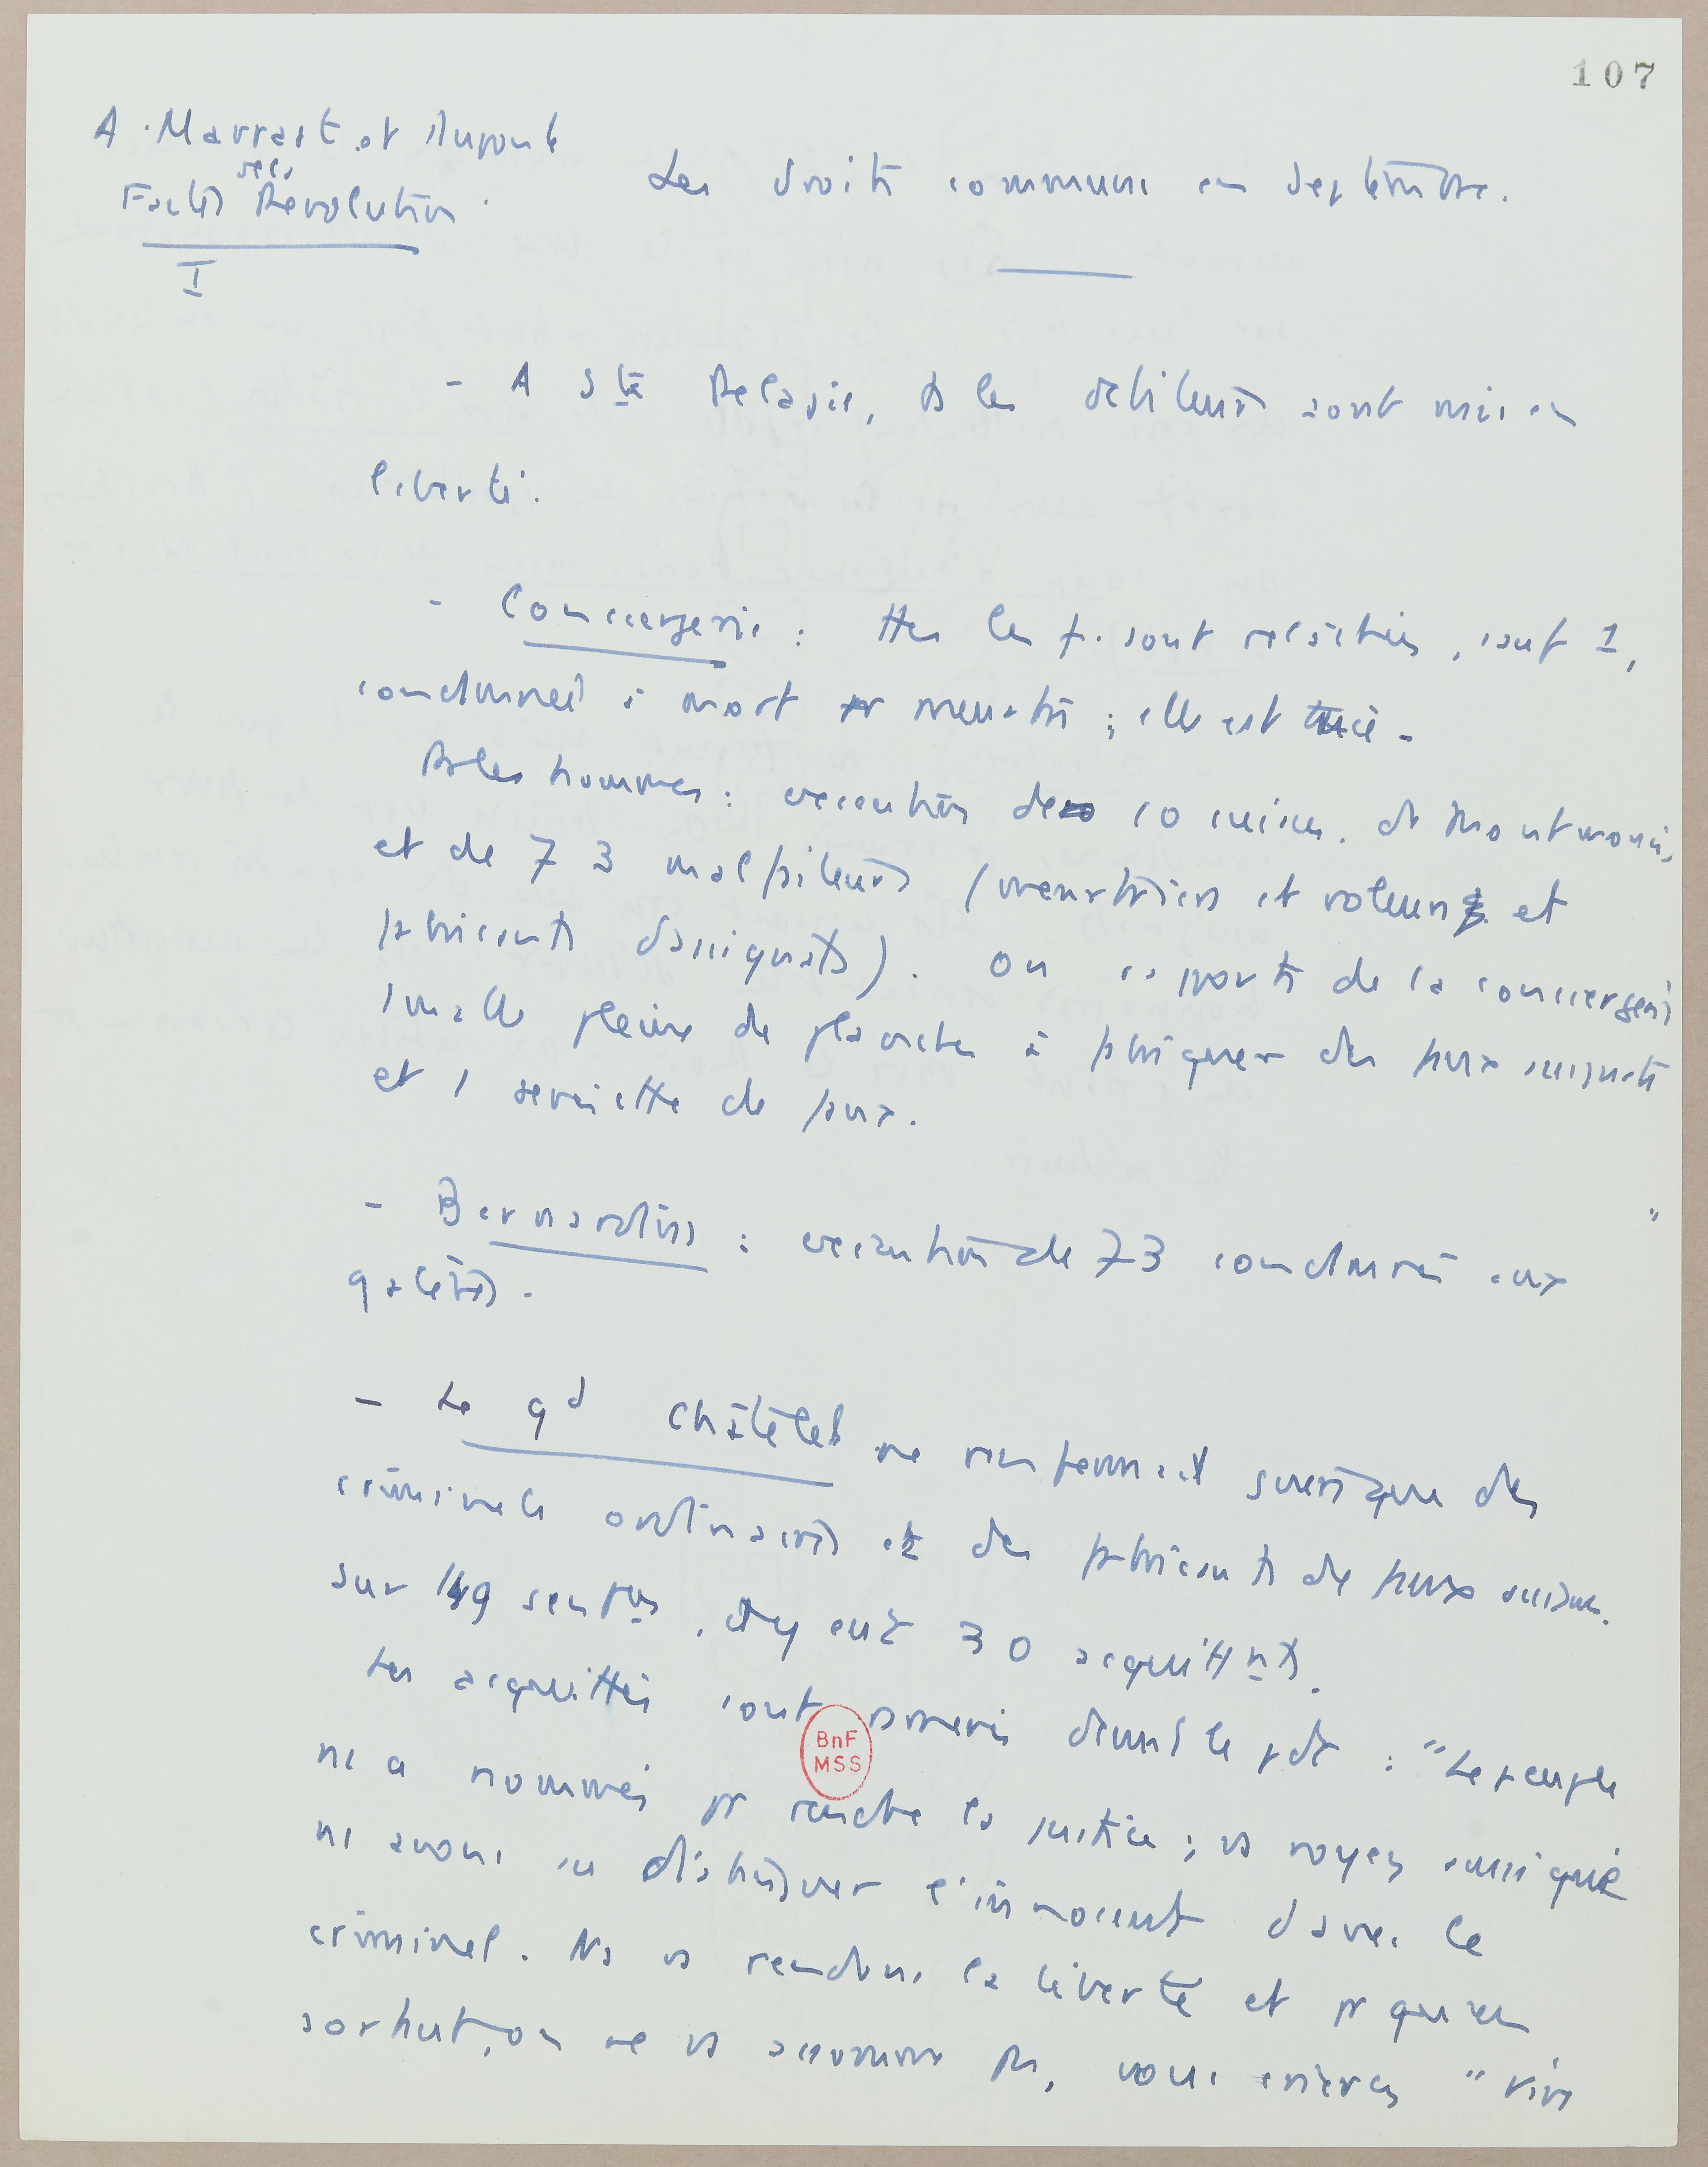 107
A. Marrast et Dupont
Fastes Révolution
I
Les droits communs en septembre.
- A Ste Pelagie, ts les détenus sont mis en
liberté.
- Conciergerie : ttes les f. sont relâchées, sauf 1,
condamnée à mort pr meurtre ; elle est tuée.
Ps les hommes : exécution de 10 suisses, de Montmorin,
et de 73 malfaiteurs (meurtriers et voleurs et
fabricants d'assignats). On a porté de la conciergerie
1 malle pleine de planches à fabriquer des faux assignats
et 1 serviette de faux.
- Bernardins : exécution de 73 condamnés aux
galères.
- Le gd Châtelet ne renfermait presque que des
criminels ordinaires et des fabricants de faux assign.
Sur 149 sentces, il y eut 30 acquittnts.
Les acquittés sont amenés devant le pdt : "Le peuple
ns a nommés pr rendre la justice ; vs voyez aussi que
ns avons su distinguer l'innocent d'avec le
criminel. Ns vs rendons la liberté et pr qu'en
sortant, on ne vs assomme pas, vous crierez "vive
BnF
MSS